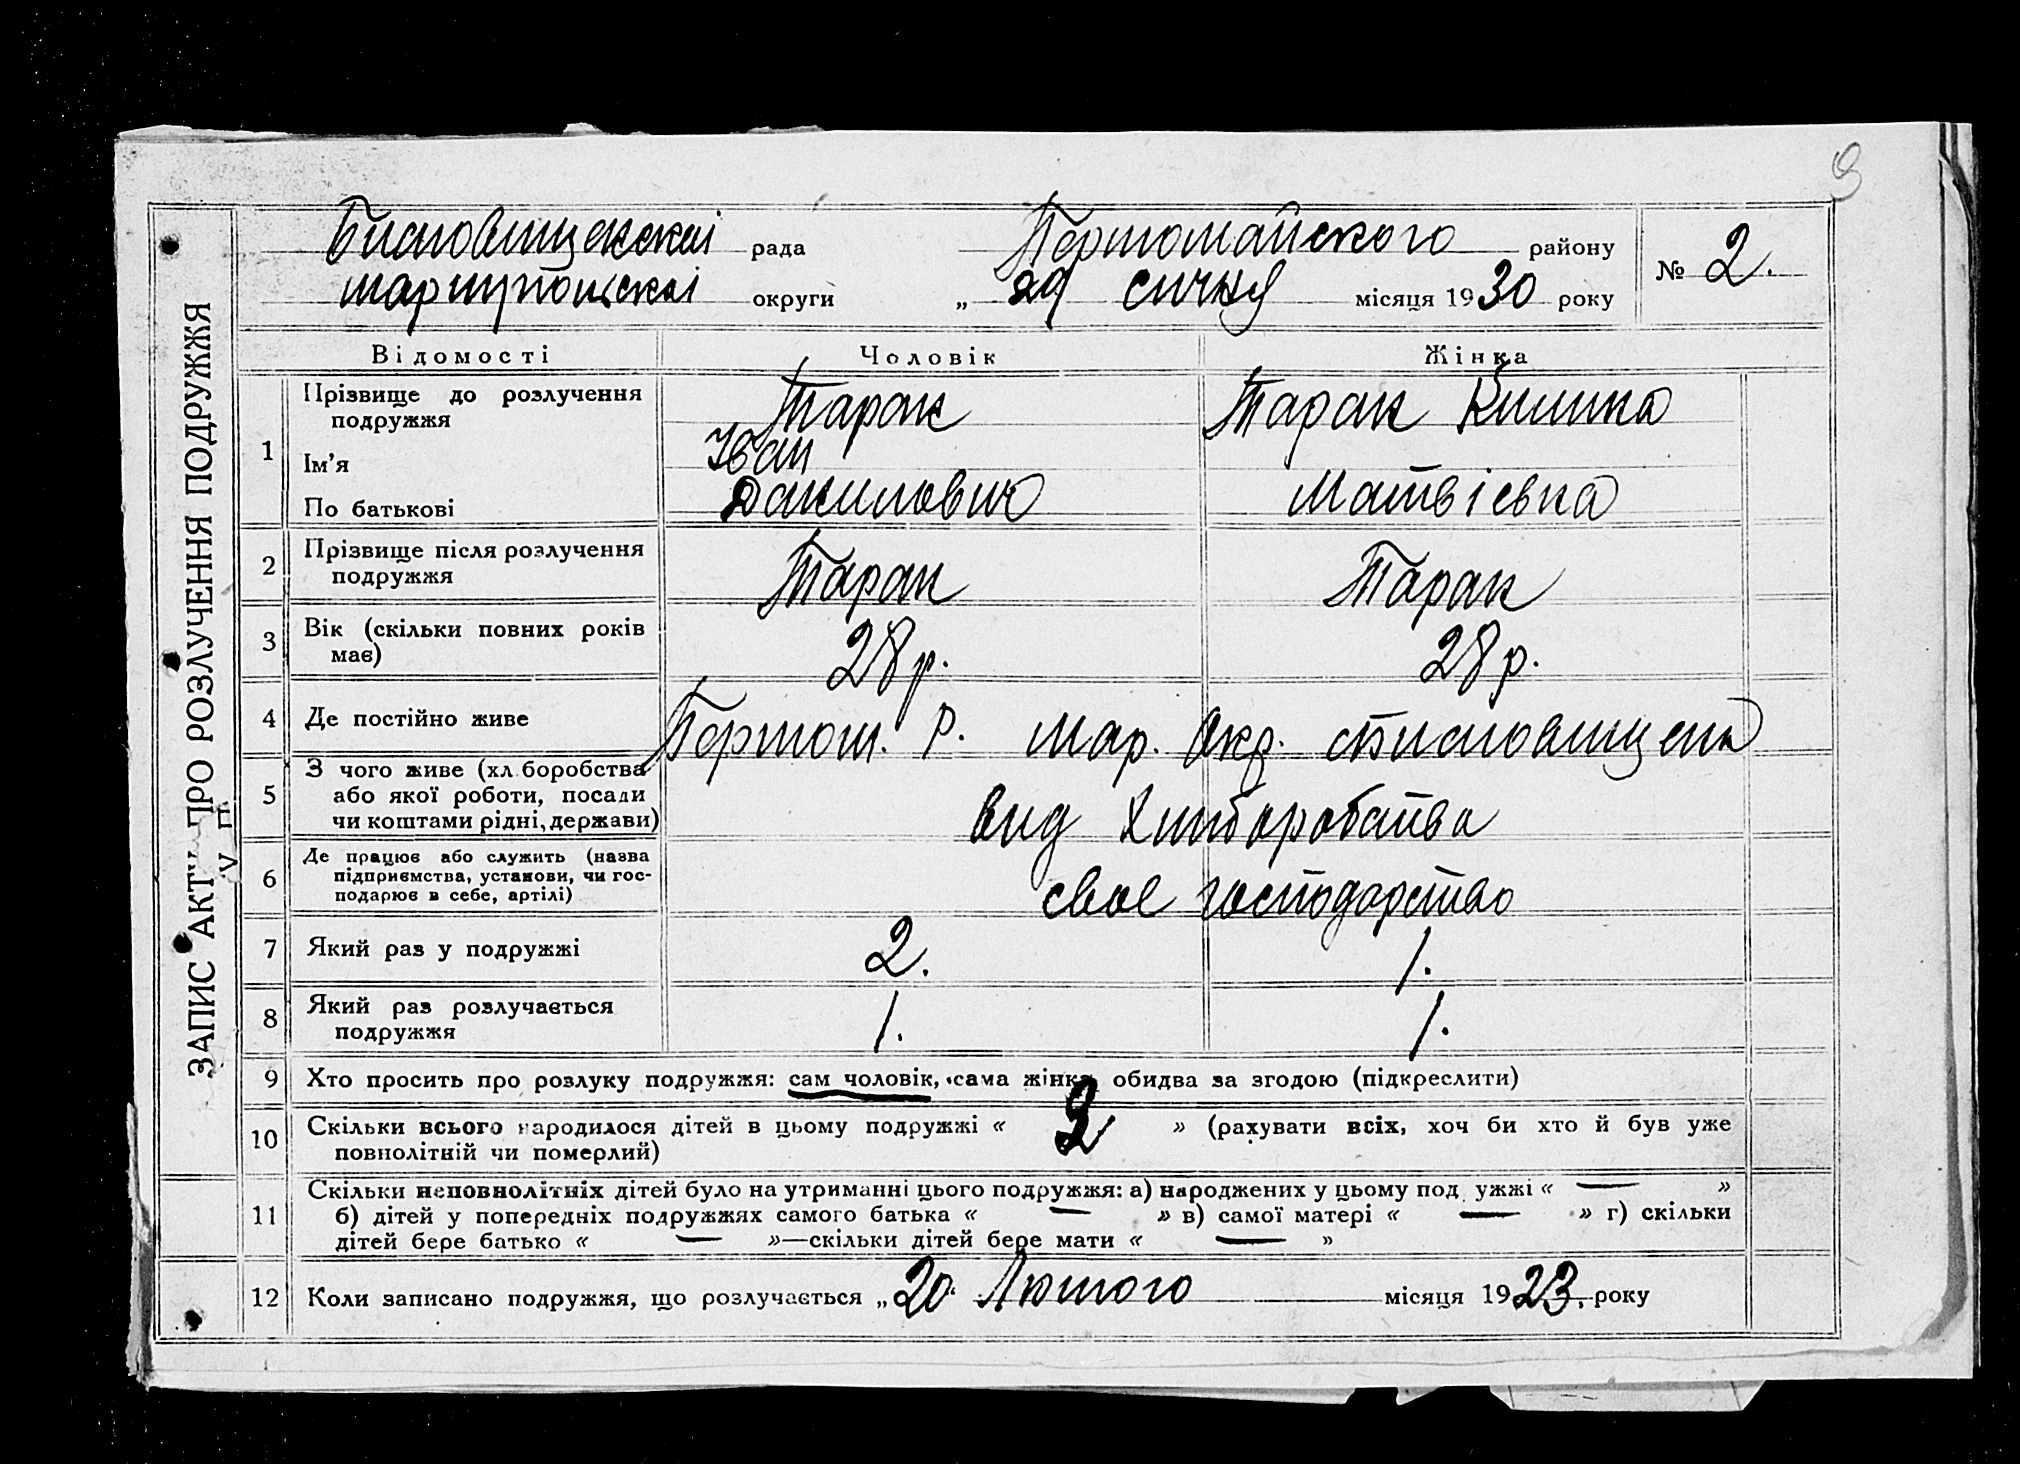 9
рада Пертомайского району № 2.
округи „ 29 січня місяця 1930 року
ЗАПИС АКТУ ПРО РОЗЛУЧЕННЯ ПОДРУЖЖЯ
Відомості Чоловік Жінка
1 Прізвище до розлучення подружжя Таран Таран Килина
Ім'я Іван
По батькові Данилович Матвієвна
2 Прізвище після розлучення
подружжя Таран Таран
3 Вік (скільки повних років
має) 28 р. 28 р.
4 Де постійно живе Пертом. Р. Мар. Окр.
5 З чого живе (хліборобства
або якої роботи, посади
чи коштами рідні, держави) вид Хліборобства
6 Де працює або служить (назва
підприємства, установи, чи гос-
подарює в себе, артілі) своє господарство
7 Який раз у подружжі 2. 1.
8 Який раз розлучається
подружжя 1. 1.
9 Хто просить про розлуку подружжя: сам чоловік, сама жінка, обидва за згодою (підкреслити)
10 Скільки всього народилося дітей в цьому подружжі « 2 » (рахувати всіх, хоч би хто й був уже
повнолітній чи померлий)
11 Скільки неповнолітніх дітей було на утриманні цього подружжя: а) народжених у цьому подружжі « — »
б) дітей у попередніх подружжях самого батька « — » в) самої матері « — » г) скільки
дітей бере батько « — »—скільки дітей бере мати « — »
12 Коли записано подружжя, що розлучається „ 20 Лютого місяця 1923. року